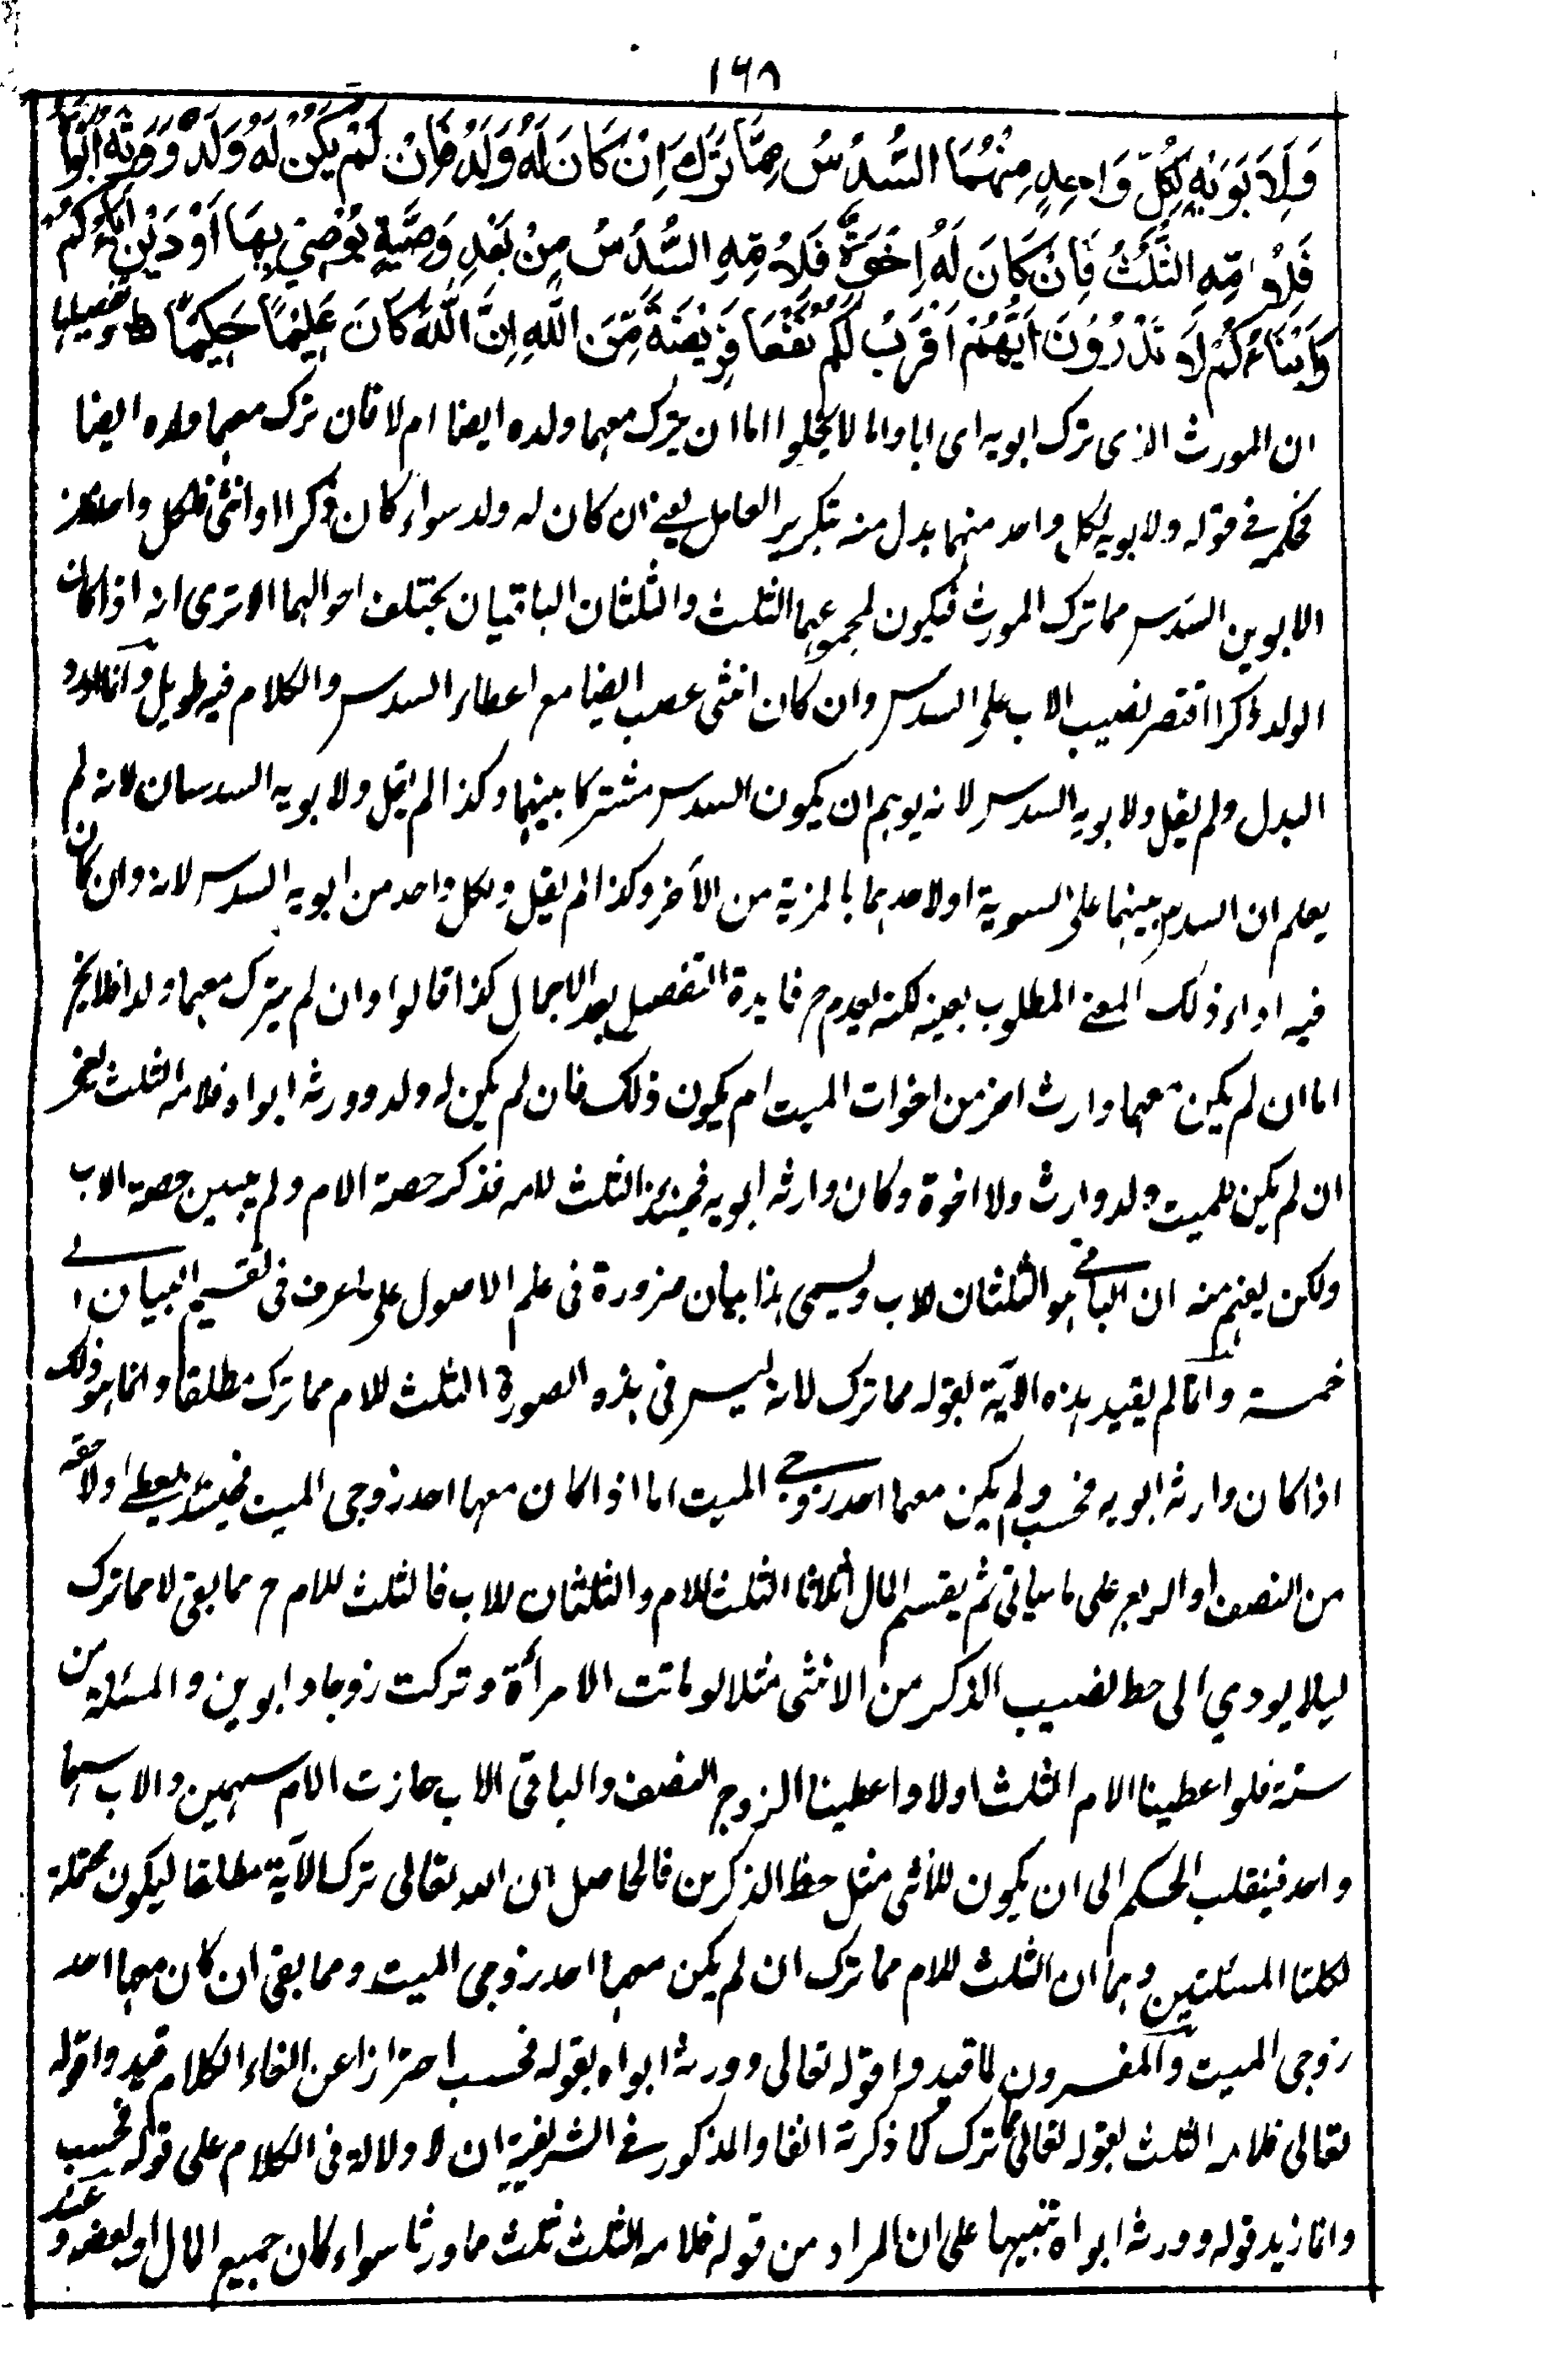 ١٦٨
وَلِاَبَوَيْهِ لِكُلِّ وَاحِدٍ مِنْهُمَا السُّدُسُ مِمَّا تَرَكَ اِنْ كَانَ لَهُ وَلَدٌ فَاِنْ لَمْ يَكُنْ لَهُ وَلَدٌ وَوَرِثَهُ اَبَوَاهُ
فَلِاُمِّهِ الثُّلُثُ فَاِنْ كَانَ لَهُ اِخْوَةٌ فَلِاُمِّهِ السُّدُسُ مِنْ بَعْدِ وَصِيَّةٍ يُوْصِيْ بِهَا اَوْ دَيْنٍ اٰبَاءُكُمْ
وَاَبْنَاءُكُمْ لَا تَدْرُوْنَ اَيُّهُمْ اَقْرَبُ لَكُمْ نَفْعًا فَرِيْضَةً مِّنَ اللّٰهِ اِنَّ اللّٰهَ كَانَ عَلِيْمًا حَكِيْمًا ط وتفصيلها
ان المورث الذى ترك ابويه اى ابا واما لا يخلوا اما ان يترك معهما ولده ايضا ام لا فان ترك معهما ولده ايضا
فحكمه فى قوله ولابويه لكل واحد منهما بدل منه بتكرير العامل يعنى ان كان له ولد سواء كان ذكرا او انثى فلكل واحد من
الابوين السدس مما ترك المورث فيكون لمجموعهما الثلث والثلثان الباقيان يختلف احوالهما الا ترى انه اذا كان
الولد ذكرا اقتصر نصيب الاب على السدس وان كان انثى عصب ايضا مع اعطاء السدس والكلام فيه طويل وانما اورد
البدل ولم يقل ولابويه السدس لانه يوهم ان يكون السدس مشتركا بينهما وكذا لم يقل ولابويه السدسان لانه لم
يعلم ان السدس بينهما على السوية او لاحدهما بالمزية من الآخر وكذا لم يقل ولكل واحد من ابويه السدس لانه وان كان
فيه اداء ذلك المعنى المطلوب بعينه لكنه يعدم ح فايدة التفصيل بعد الاجمال كذا قالوا وان لم يترك معهما ولدا فلا يخ
اما ان لم يكن معهما وارث اخر من اخوات الميت ام يكون ذلك فان لم يكن له ولد وورثه ابواه فلامه الثلث يعنى
ان لم يكن للميت ولد وارث ولا اخوة وكان وارثه ابويه فحينئذ الثلث لامه فذكر حصة الام ولم يبين حصة الاب
ولكن يفهم منه ان الباقى هو الثلثان للاب ويسمى هذا بيان ضرورة فى علم الاصول على ما عرف فى تقسيم البيان الى
خمسة وانما لم يقيد هذه الآية بقوله مما ترك لانه ليس فى هذه الصورة الثلث للام مما ترك مطلقا وانما هو ذلك
اذا كان وارثه ابويه فحسب ولم يكن معهما احد زوجى الميت اما اذا كان معهما احد زوجى الميت فحينئذ يعطى اولا حقه
من النصف او الربع على ما سياتى ثم يقسم المال اثلاثا الثلث للام والثلثان للاب فالثلث للام ح مما بقى لا مما ترك
ليلا يودي الى حط نصيب الذكر من الانثى مثلا لو ماتت الامرأة وتركت زوجا وابوين والمسئلة من
ستة فلو اعطينا الام الثلث اولا واعطينا الزوج النصف والباقى الاب حازت الام سهمين والاب سهما
واحد فينقلب الحكم الى ان يكون للانثى مثل حظ الذكرين فالحاصل ان الله تعالى ترك الآية مطلقا ليكون محتملة
لكلتا المسئلتين وهما ان الثلث للام مما ترك ان لم يكن معهما احد زوجى الميت ومما بقى ان كان معهما احد
زوجى الميت والمفسرون لما قيدوا قوله تعالى وورثه ابواه بقوله فحسب احترازا عن الغاء الكلام قيدوا قوله
تعالى فلامه الثلث بقوله تعالى مما ترك كما ذكرته انفا والمذكور فى الشريفية ان لا دلالة فى الكلام على قوله فحسب
وانما زيد قوله وورثه ابواه تنبيها على ان المراد من قوله فلامه الثلث ثلث ما ورثا سواء كان جميع المال او بعضه وعند